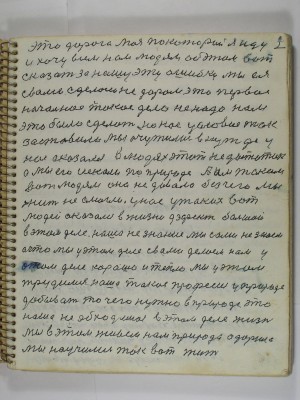 9
это дорога моя по которой я иду
и хочу всем нам людям об этом вот
сказат за нашу эту ошибку мы ея
сваме сделоне не даром это первое
началное токое дело не надо нам
это было сделат но нас условие так
заставило мы очутилис в нужде у
нас оказался в людях этот недостаток
а мы его искали по природе А им таким
вот людям она не давала без чего мы
жит не смогли, у нас у таких вот
людей оказался в жизни дефект болшой
в этом деле, наша не знание мы сами не знаем
что мы у этом деле сваме делаем нам у
этом деле хорошо и тепло мы у этом
трудимся наша такая професия у природе
добиват то чего нужно в природе это
наша не обходимост в этом деле жизн
мы в этом живем нам природа
мы научилис так вот жит